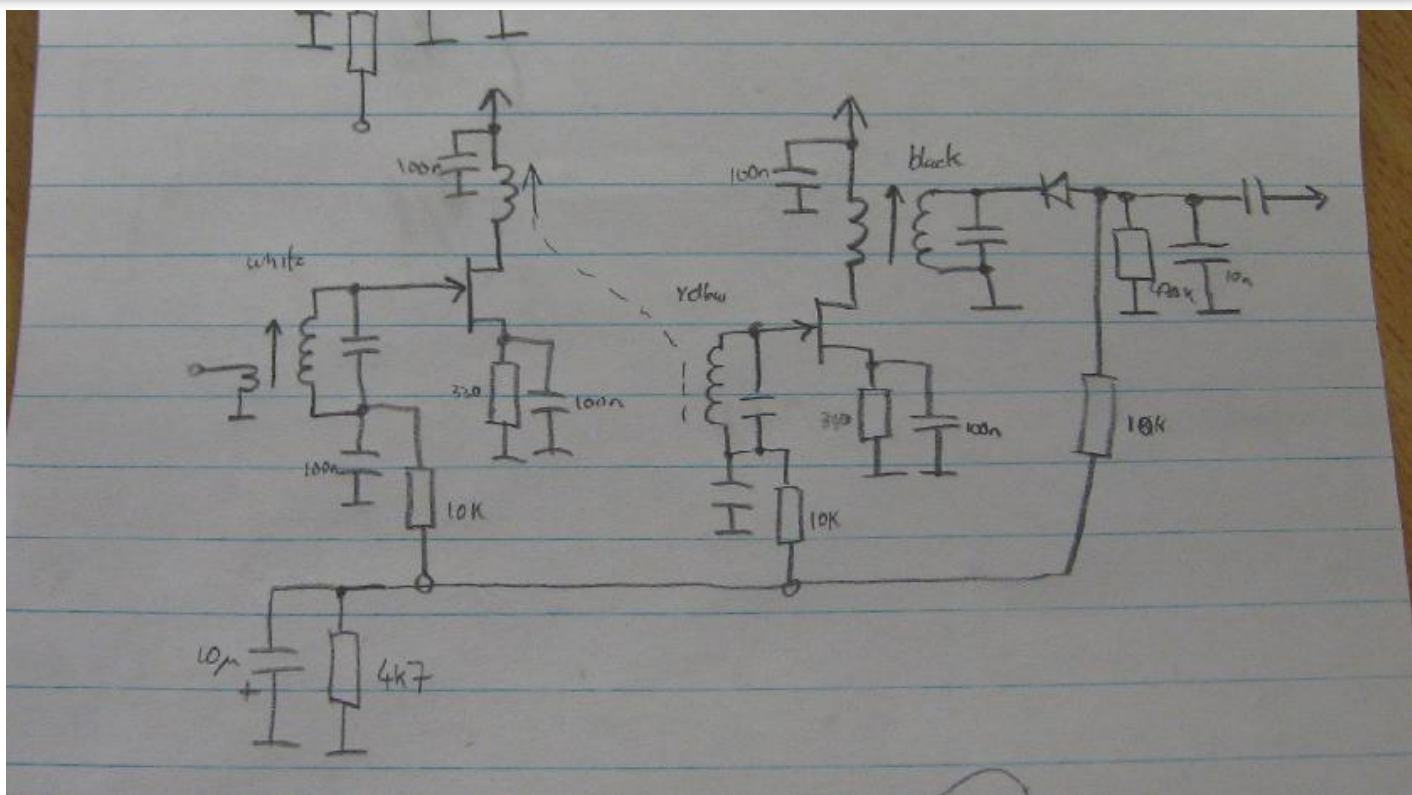 100n
100n
black
white
Yellow
10n
330
100n
100n
100n
10K
10K
10µ
+
4k7